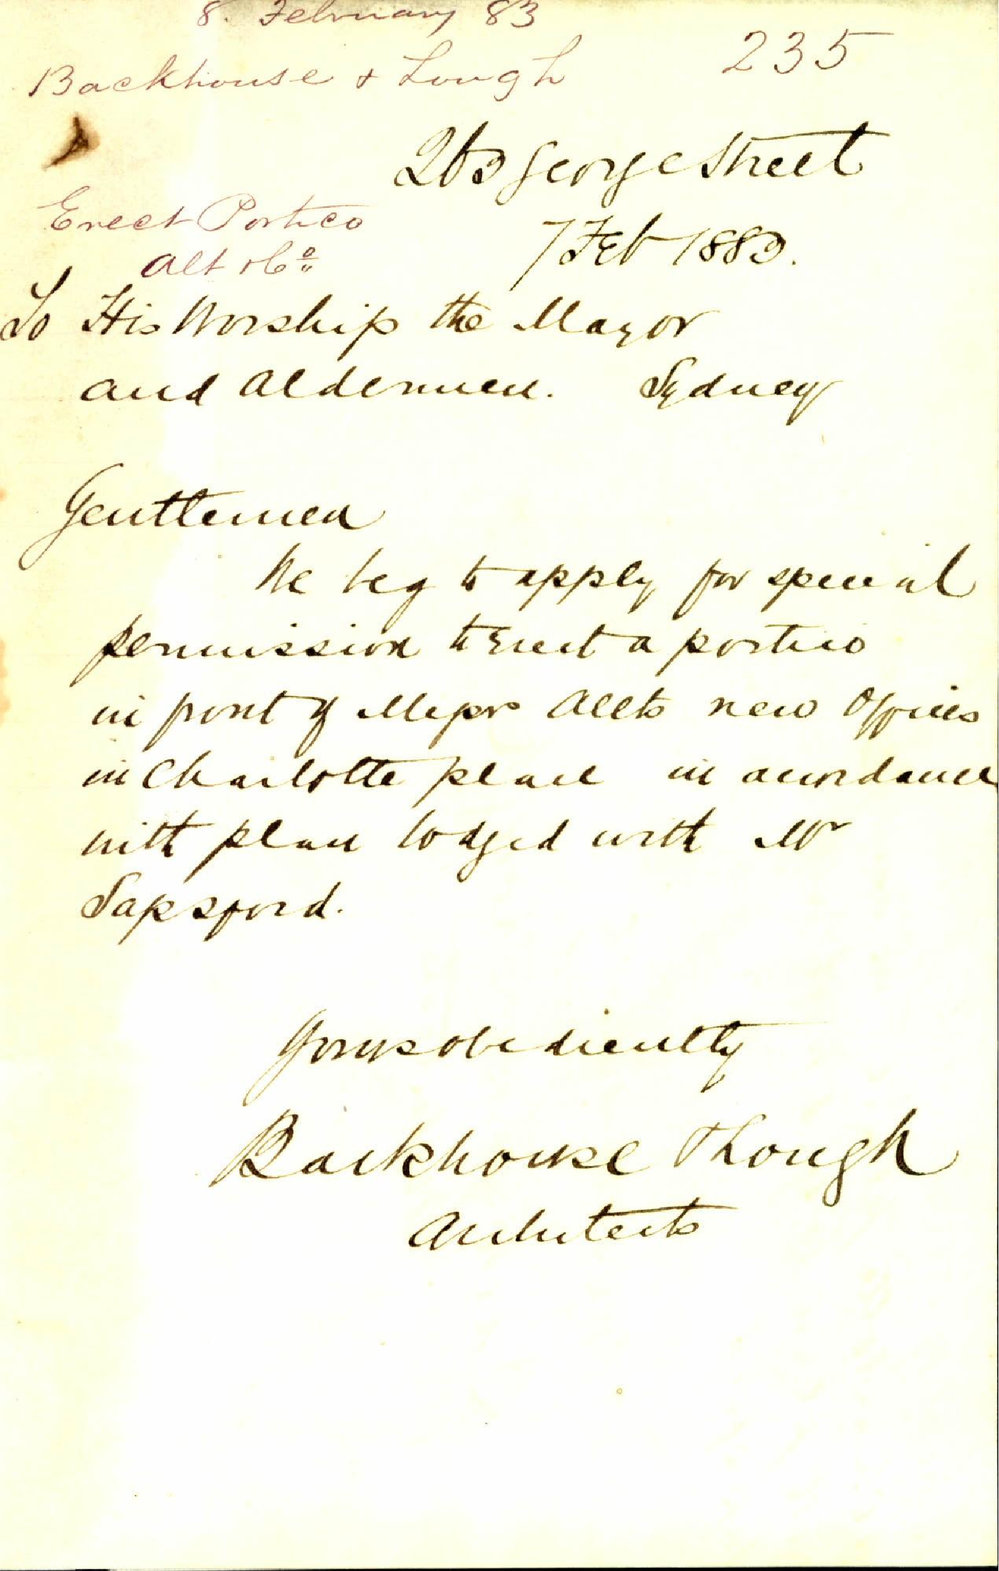 8. February 83
Backhouse & Lough
235
263 George Street
Erect Portico
7 Feb 1883.
Alt & Co
To His Worship the Mayor
and Aldermen. Sydney
Gentlemen
We beg to apply for special
permission to Erect a portico
in front of Messrs Allts new Offices
in Charlotte place in accordance
with plan lodged with Mr
Sapsford.
Yours obediently
Backhouse & Lough
Architects